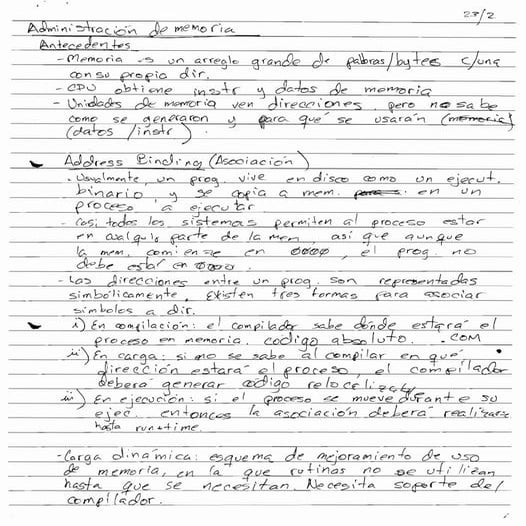 23/2
Administración de memoria
Antecedentes
- Memoria es un arreglo grande de palbras/bytes c/una
con su propio dir.
- CPU obtiene instr y datos de memoria
- Unidades de memoria ven direcciones, pero no sabe
como se generaron y para qué se usarán (memoria)
(datos / instr)
Address Binding (Asociación)
- Usualmente, un prog. vive en disco como un ejecut.
binario y se copia a mem. en un
proceso a ejecutar
- Casi todos los sistemas permiten al proceso estar
en cualquier parte de la mem, así que aunque
la mem. comience en 0000, el prog. no
debe estar en 0000.
- Las direcciones entre un prog. son representadas
simbólicamente. Existen tres formas para asociar
símbolos a dir.
i) En compilación: el compilador sabe dónde estará el
proceso en memoria. codigo absoluto. .COM
ii) En carga: si no se sabe al compilar en qué
dirección estará el proceso, el compilador
deberá generar código relocalizable
iii) En ejecución: si el proceso se mueve durante su
ejec. entonces la asociación deberá realizarse
hasta runtime.
- Carga dinámica: esquema de mejoramiento de uso
de memoria, en la que rutinas no se utilizan
hasta que se necesitan. Necesita soporte del
compilador.